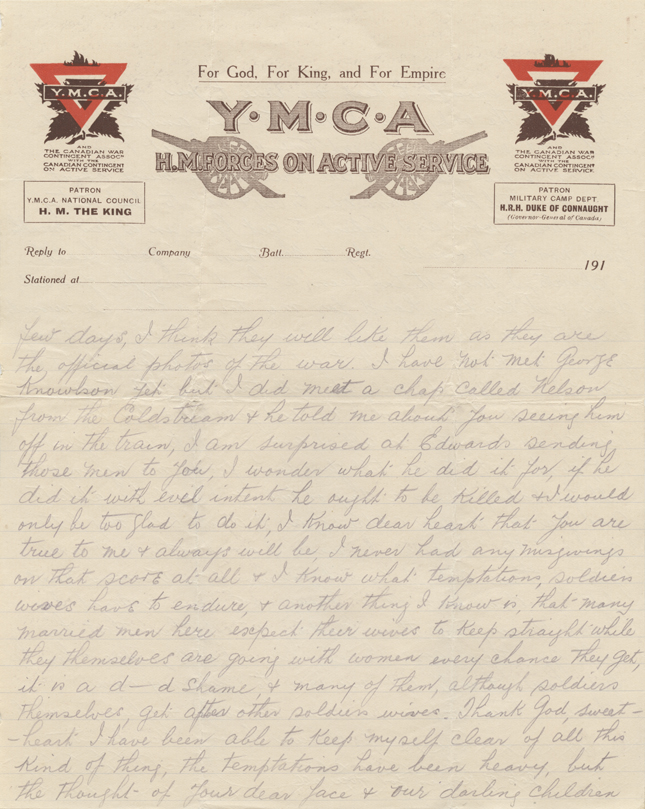 For God, For King, and For Empire
Y·M·C·A
H.M. FORCES ON ACTIVE SERVICE
Y.M.C.A.
AND
THE CANADIAN WAR
CONTINGENT ASSOCN
WITH THE
CANADIAN CONTINGENT
ON ACTIVE SERVICE
PATRON
Y.M.C.A. NATIONAL COUNCIL
H. M. THE KING
Y.M.C.A.
AND
THE CANADIAN WAR
CONTINGENT ASSOCN
WITH THE
CANADIAN CONTINGENT
ON ACTIVE SERVICE
PATRON
MILITARY CAMP DEPT
H.R.H. DUKE OF CONNAUGHT
(Governor-General of Canada)
Reply to Company Batt. Regt.
191
Stationed at
few days, I think they will like them as they are
the official photos of the war. I have not met George
Knowlson yet but I did meet a chap called Nelson
from the Coldstream & he told me about you seeing him
off in the train, I am surprised at Edwards sending
those men to you, I wonder what he did it for, if he
did it with evel intent he ought to be killed & I would
only be too glad to do it, I know dear heart that you are
true to me & always will be, I never had any misgivings
on that score at all & I know what temptations, soldiers
wives have to endure, & another thing I know is, that many
married men here expect their wives to keep straight while
they themselves are going with women every chance they get,
it is a d—d shame, & many of them, although soldiers
themselves, get after other soldiers wives. Thank God, sweet-
-heart I have been able to keep myself clear of all this
kind of thing, the temptations have been heavy, but
the thought of your dear face & our darling children